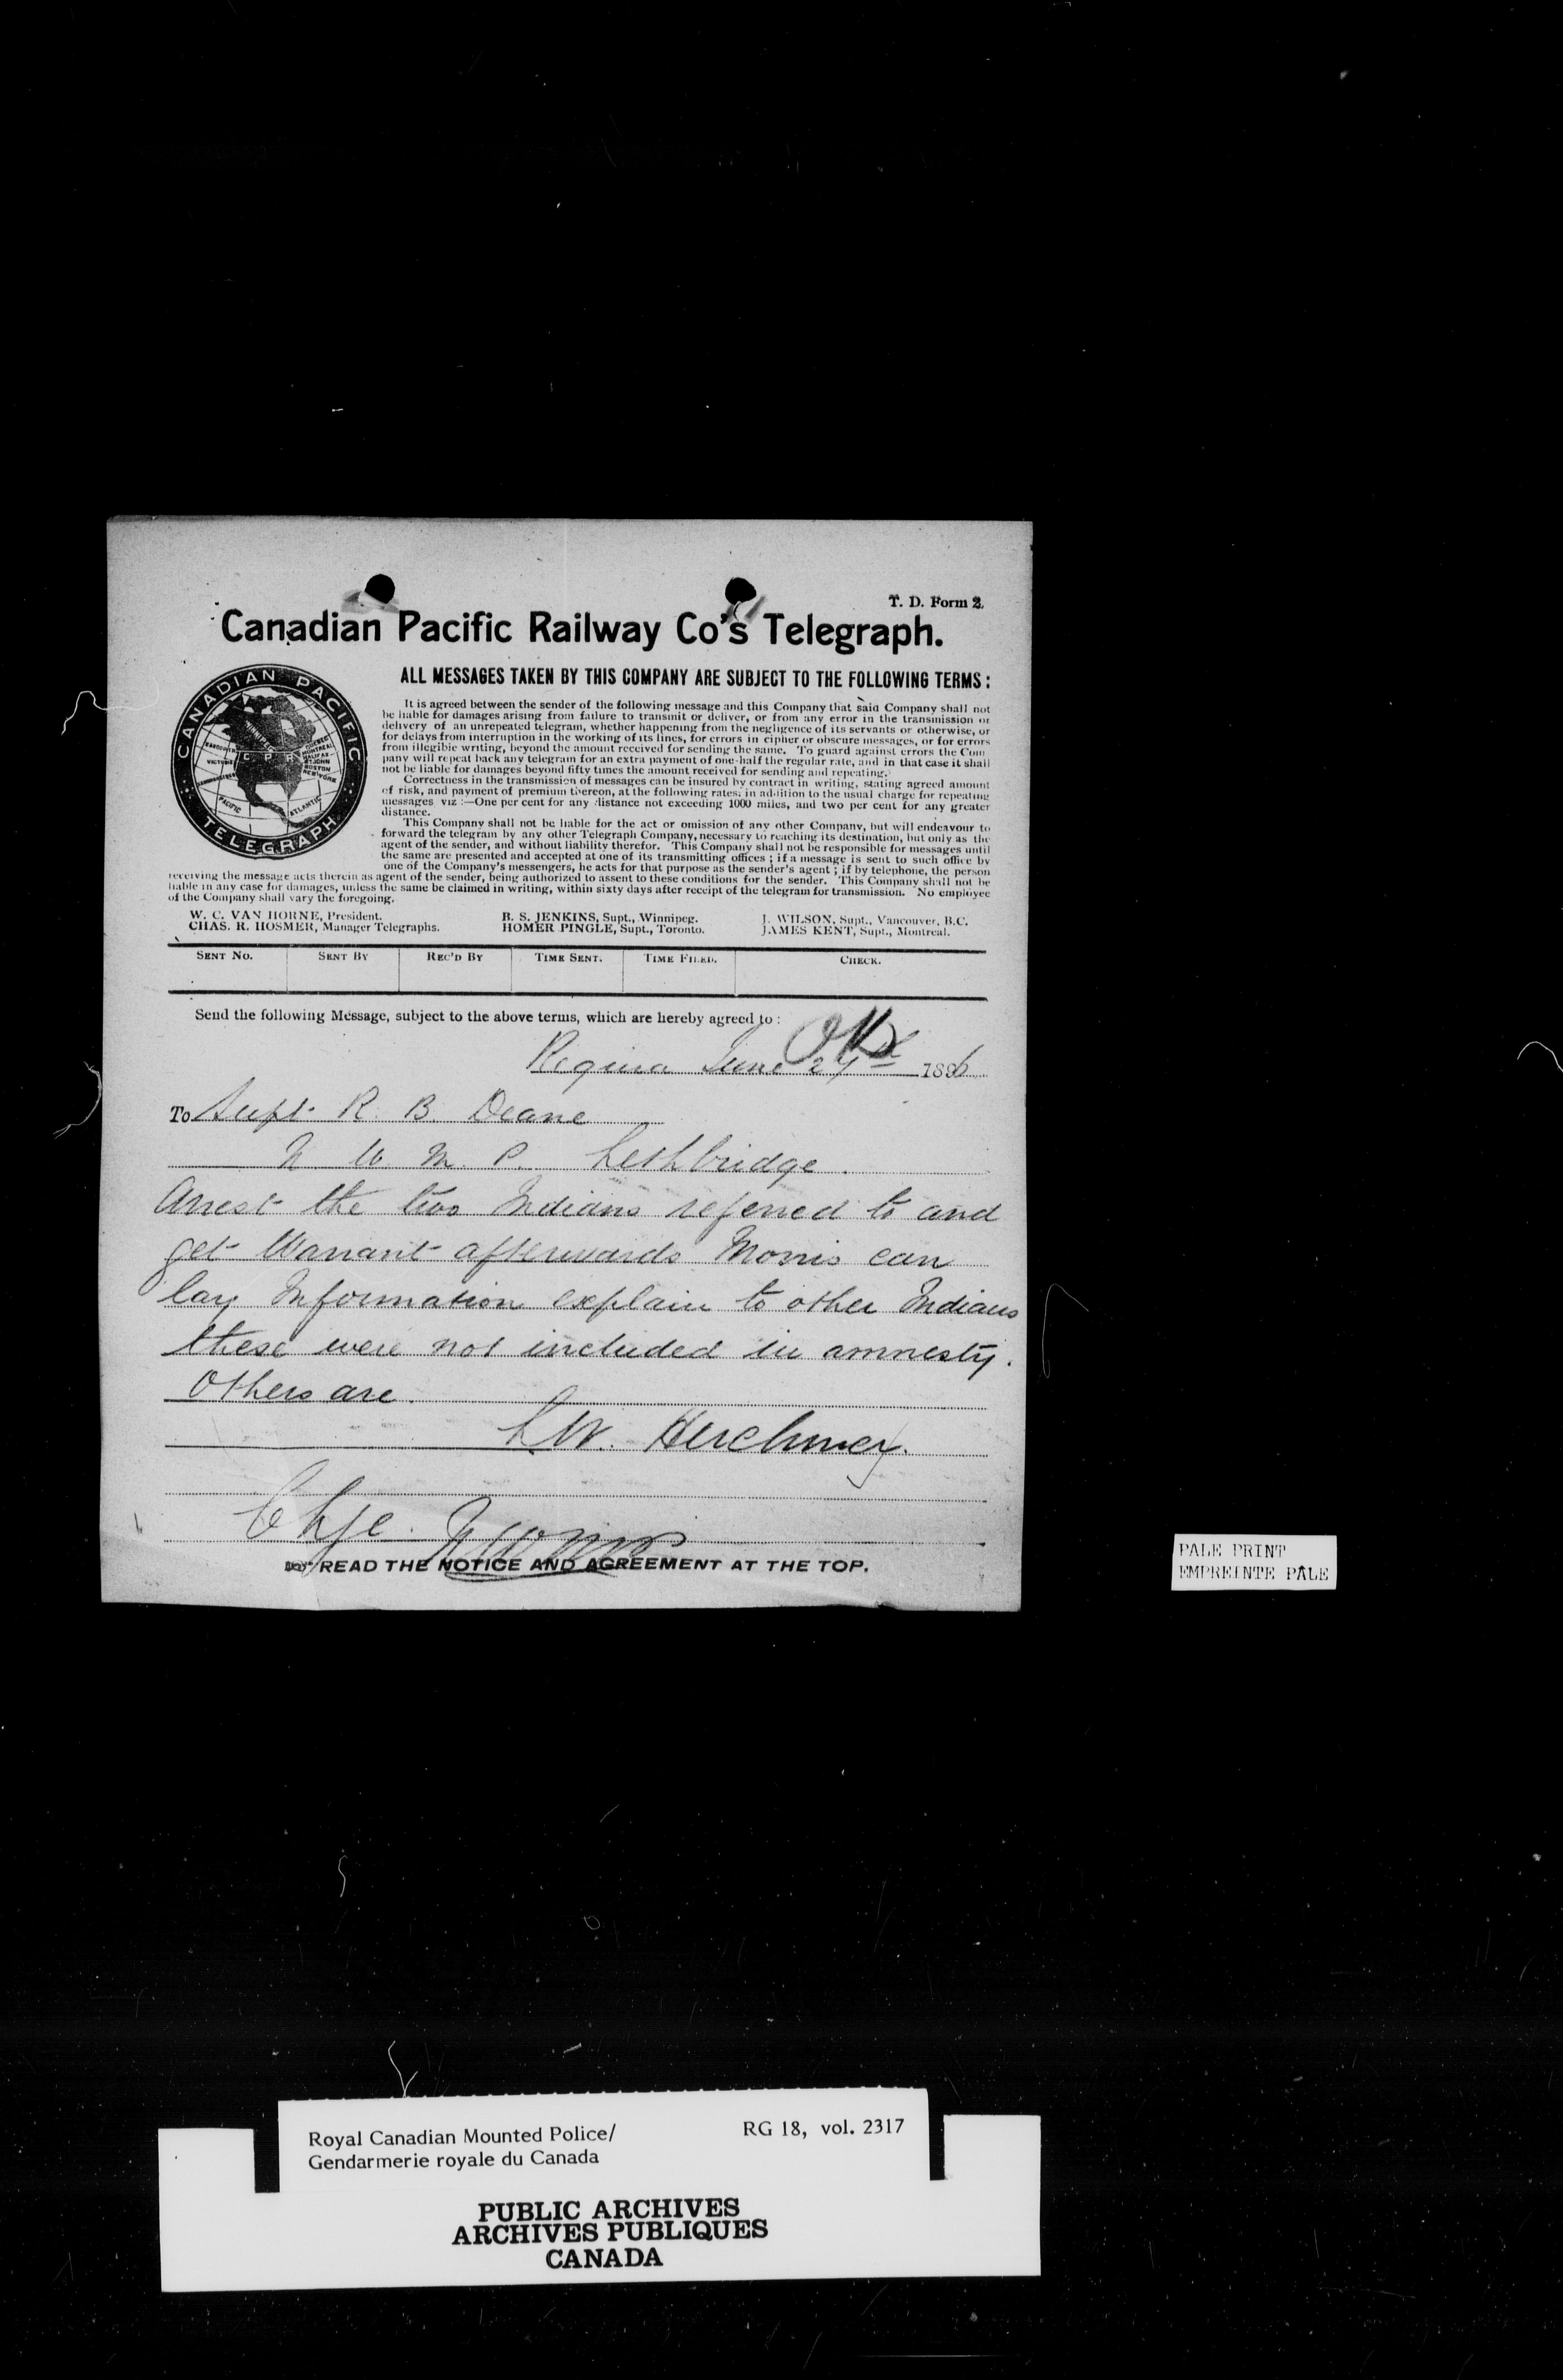 T. D. Form 2.
Canadian Pacific Railway Co's Telegraph.
CANADIAN PACIFIC
TELEGRAPH
C P R
PACIFIC
ATLANTIC
ALL MESSAGES TAKEN BY THIS COMPANY ARE SUBJECT TO THE FOLLOWING TERMS:
It is agreed between the sender of the following message and this Company that said Company shall not
be liable for damages arising from failure to transmit or deliver, or from any error in the transmission or
delivery of an unrepeated telegram, whether happening from the negligence of its servants or otherwise, or
for delays from interruption in the working of its lines, for errors in cipher or obscure messages, or for errors
from illegible writing, beyond the amount received for sending the same. To guard against errors the Com
pany will repeat back any telegram for an extra payment of one-half the regular rate, and in that case it shall
not be liable for damages beyond fifty times the amount received for sending and repeating.
Correctness in the transmission of messages can be insured by contract in writing, stating agreed amount
of risk, and payment of premium thereon, at the following rates, in addition to the usual charge for repeating
messages viz :—One per cent for any distance not exceeding 1000 miles, and two per cent for any greater
distance.
This Company shall not be liable for the act or omission of any other Company, but will endeavour to
forward the telegram by any other Telegraph Company, necessary to reaching its destination, but only as the
agent of the sender, and without liability therefor. This Company shall not be responsible for messages until
the same are presented and accepted at one of its transmitting offices ; if a message is sent to such office by
one of the Company's messengers, he acts for that purpose as the sender's agent ; if by telephone, the person
receiving the message acts therein as agent of the sender, being authorized to assent to these conditions for the sender. This Company shall not be
liable in any case for damages, unless the same be claimed in writing, within sixty days after receipt of the telegram for transmission. No employee
of the Company shall vary the foregoing.
W. C. VAN HORNE, President. B. S. JENKINS, Supt., Winnipeg. J. WILSON, Supt., Vancouver, B.C.
CHAS. R. HOSMER, Manager Telegraphs. HOMER PINGLE, Supt., Toronto. JAMES KENT, Supt., Montreal.
SENT No. SENT BY REC'D BY TIME SENT. TIME FILED. CHECK.
Send the following Message, subject to the above terms, which are hereby agreed to :
Regina June 27th 1896
To Supt. R. B. Deane
N W M P. Lethbridge.
Arrest the two Indians referred to and
get Warrant afterwards Morris can
lay Information explain to other Indians
these were not included in amnesty.
Others are.
L W. Herchmer.
Chge. N W M P
READ THE NOTICE AND AGREEMENT AT THE TOP.
PALE PRINT
EMPREINTE PÂLE
Royal Canadian Mounted Police/ RG 18, vol. 2317
Gendarmerie royale du Canada
PUBLIC ARCHIVES
ARCHIVES PUBLIQUES
CANADA